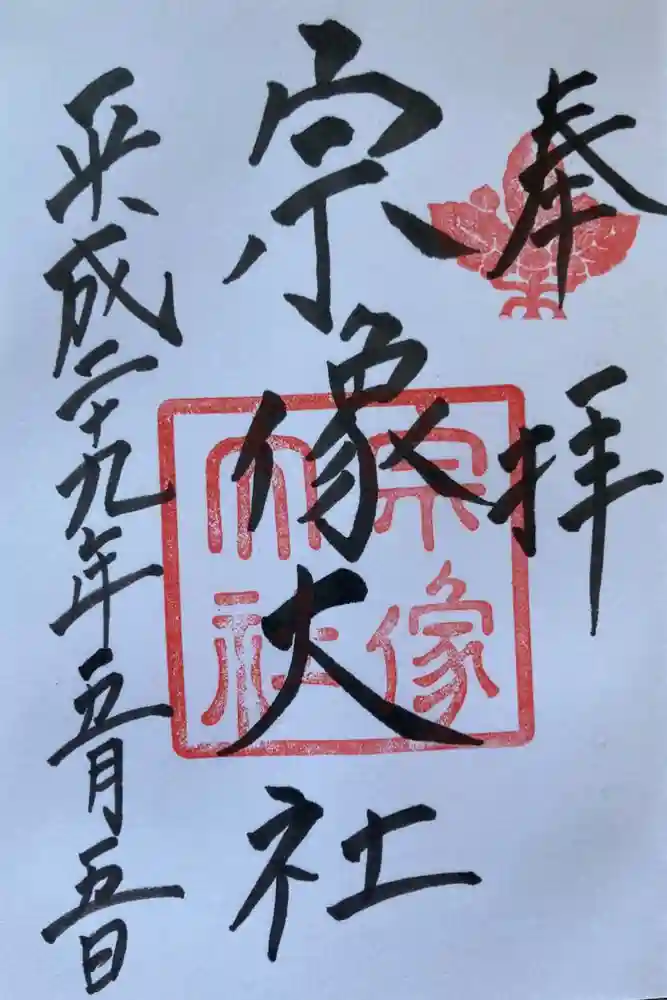 奉拝
宗像大社
宗像
大社
平成二十九年五月五日